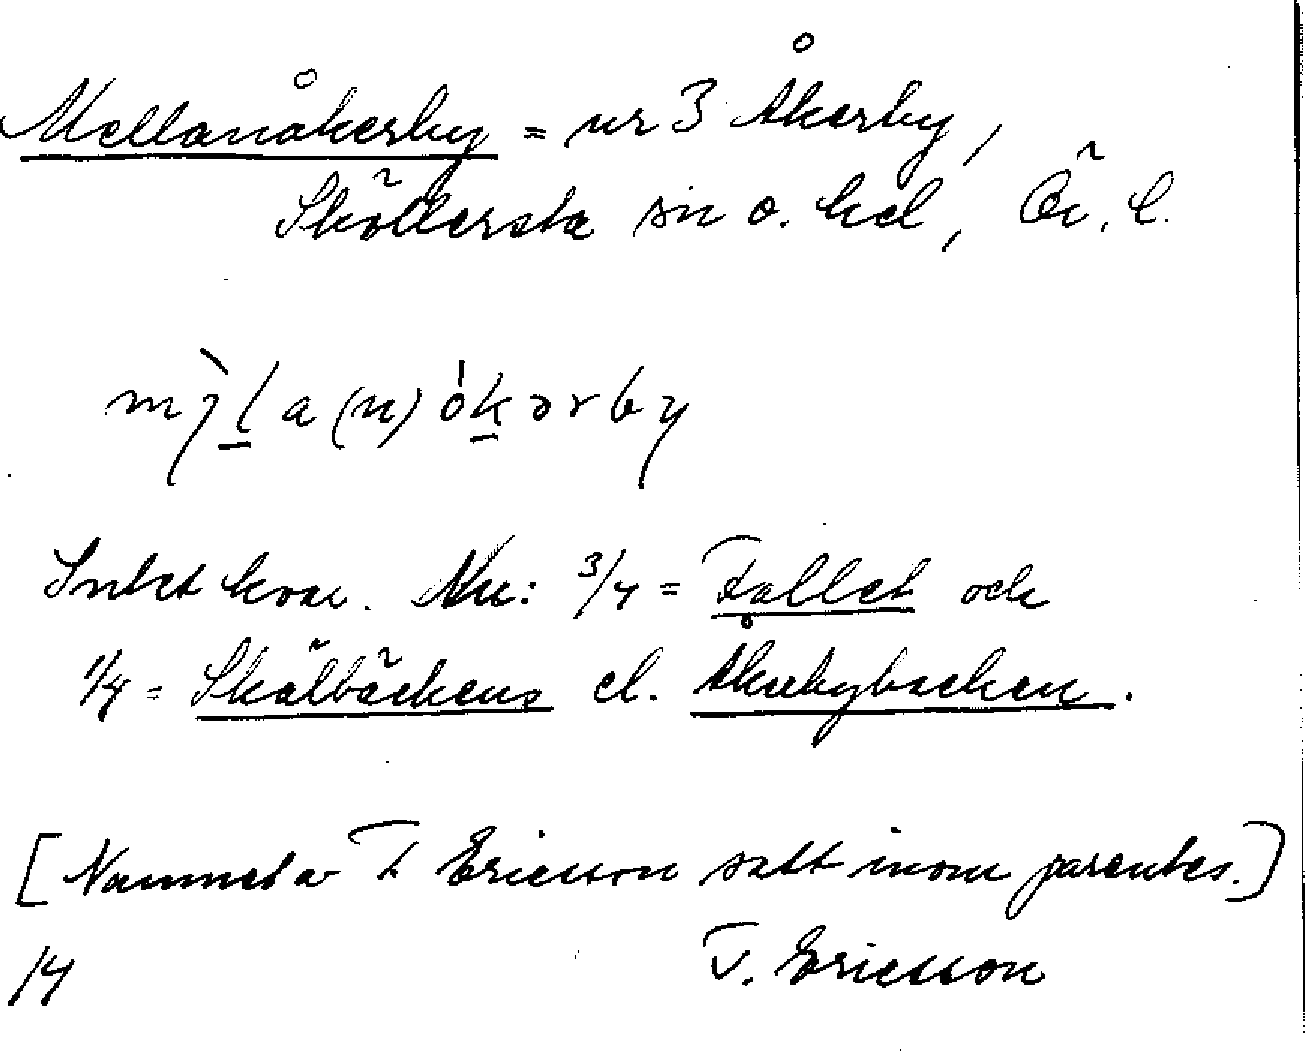 Mellanåkerby = nr 3 Åkerby,
Sköllersta sn o. hd, Ör. l.
mɉ̀l̲a(n)ók̲ərby
Intet kvar. Nu: 3/4 = Fallet och
1/4 = Skälbäckens el. Åkerbybacken.
[Namnet av T Ericsson satt inom parentes.]
T. Ericsson
14